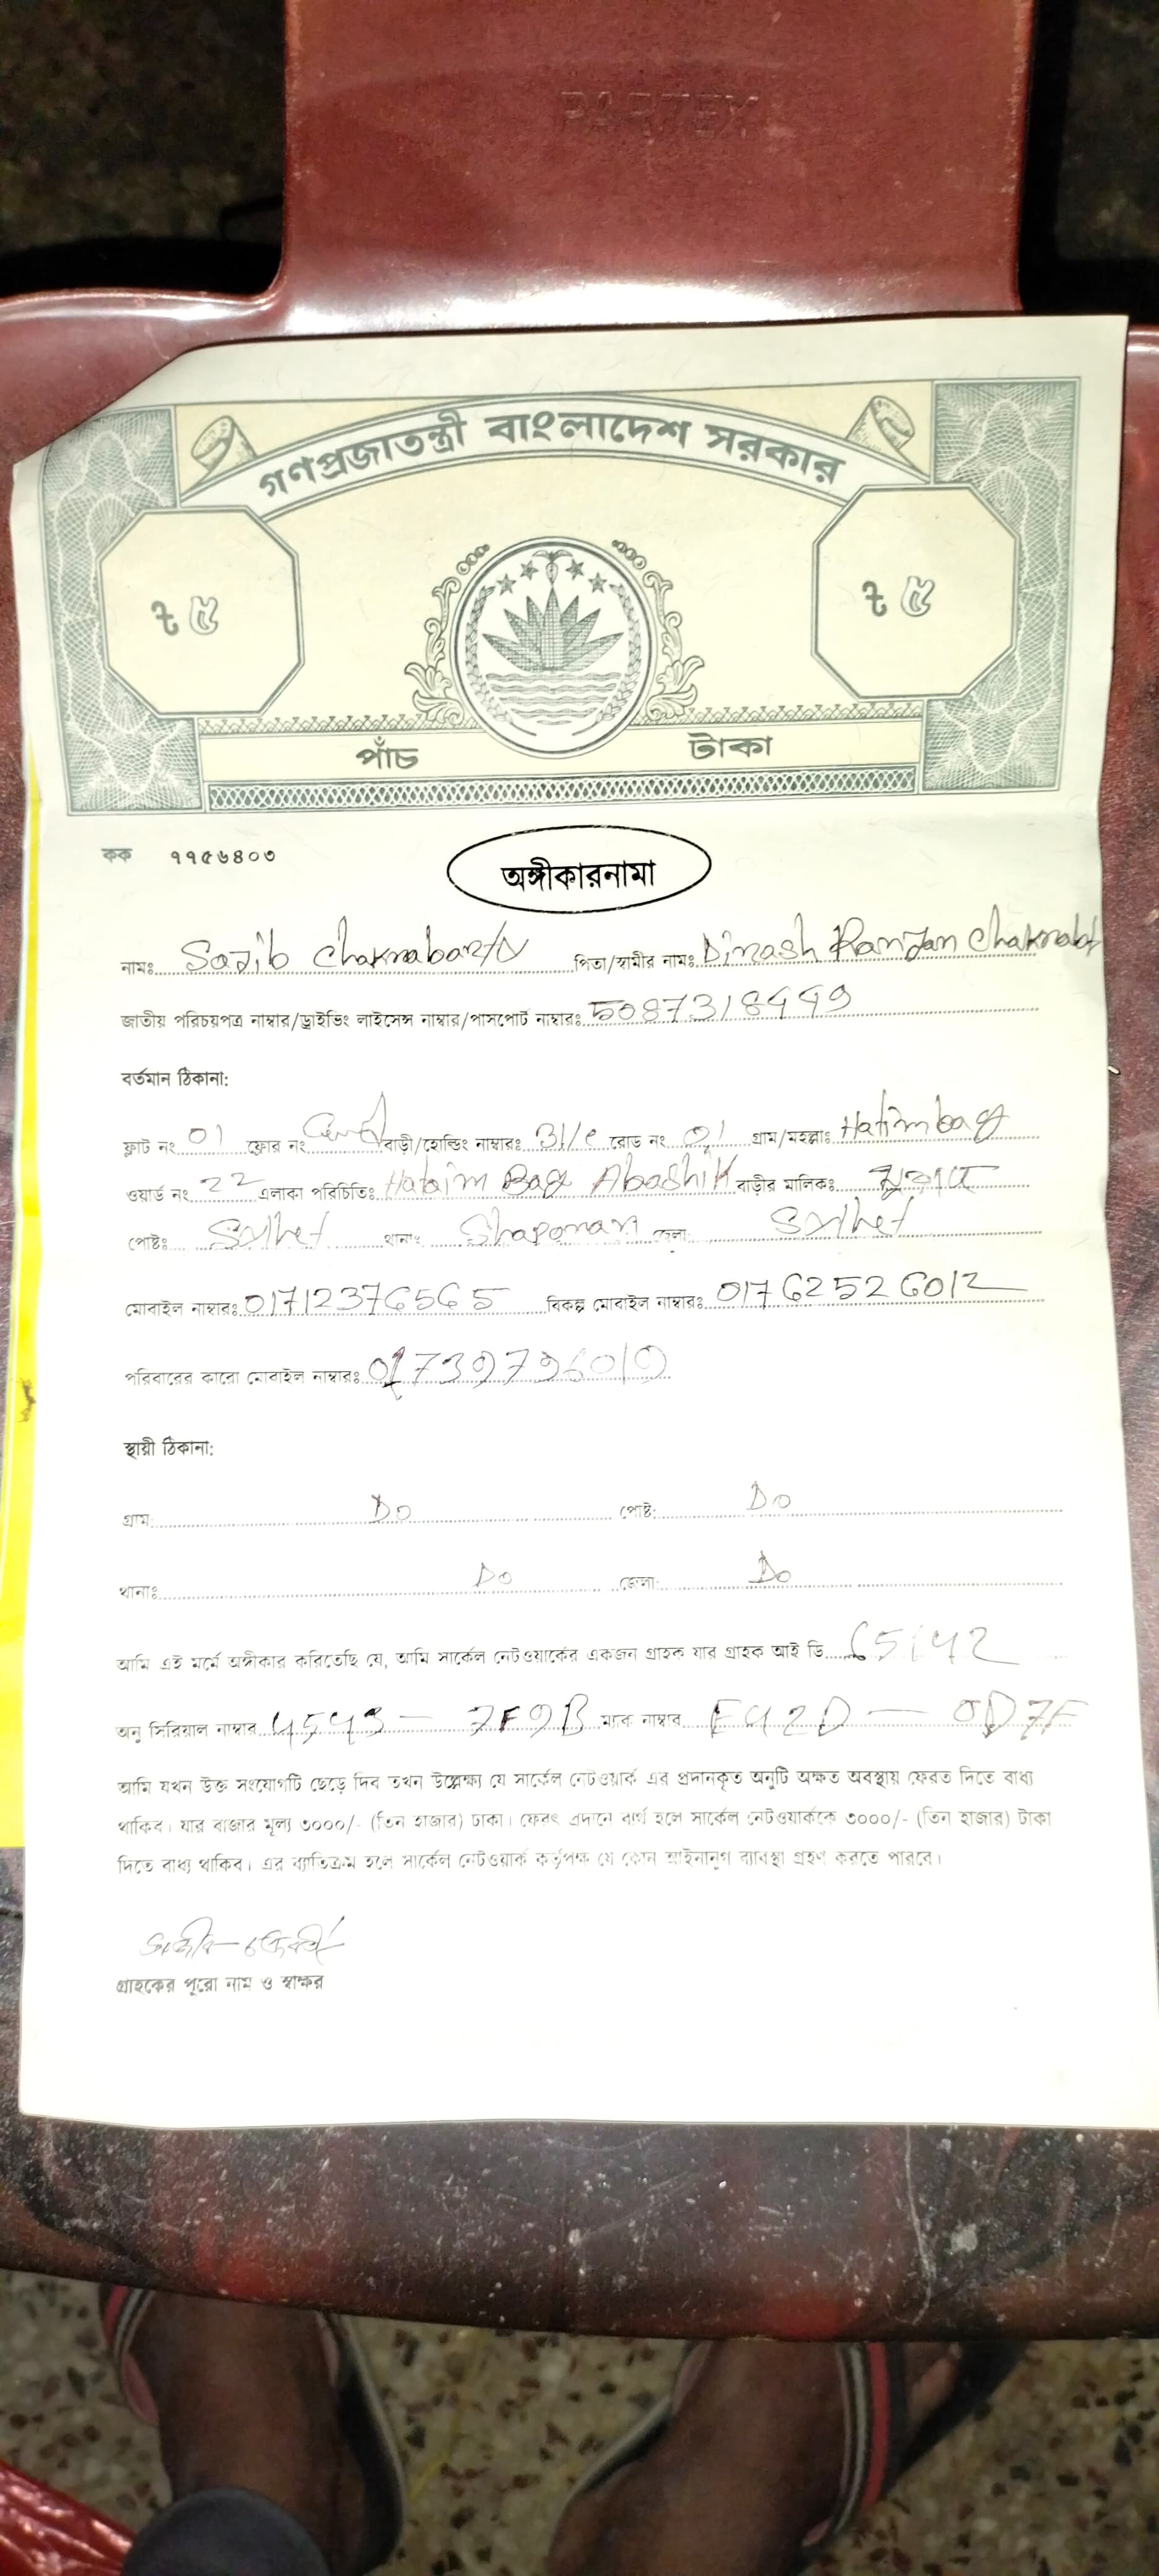 PARTEX
গণপ্রজাতন্ত্রী বাংলাদেশ সরকার
৳ ৫ ৳ ৫
পাঁচ টাকা
কক ৭৭৫৬৪০৩
অঙ্গীকারনামা
নামঃ Sajib Chakrabarty পিতা/স্বামীর নামঃ Dinash Ranjan Chakrabt
জাতীয় পরিচয়পত্র নাম্বার/ড্রাইভিং লাইসেন্স নাম্বার/পাসপোর্ট নাম্বারঃ 5087318449
বর্তমান ঠিকানা:
ফ্লাট নং 01 ফ্লোর নং বাড়ী/হোল্ডিং নাম্বারঃ 31/e রোড নং 01 গ্রাম/মহল্লাঃ Hatimbag
ওয়ার্ড নং 22 এলাকা পরিচিতিঃ Hataim Bag Abashik বাড়ীর মালিকঃ
পোষ্টঃ Sylhet থানাঃ Shaporan জেলা: Sylhet
মোবাইল নাম্বারঃ 01712376565 বিকল্প মোবাইল নাম্বারঃ 01762526012
পরিবারের কারো মোবাইল নাম্বারঃ 01739796019
স্থায়ী ঠিকানা:
গ্রাম: Do পোষ্ট: Do
থানাঃ Do জেলা: Do
আমি এই মর্মে অঙ্গীকার করিতেছি যে, আমি সার্কেল নেটওয়ার্কের একজন গ্রাহক যার গ্রাহক আই ডি 65142
অনু সিরিয়াল নাম্বার 4543 - 7F9B ম্যাক নাম্বার F42D - 0D7F
আমি যখন উক্ত সংযোগটি ছেড়ে দিব তখন উল্লেক্ষ্য যে সার্কেল নেটওয়ার্ক এর প্রদানকৃত অনুটি অক্ষত অবস্থায় ফেরত দিতে বাধ্য
থাকিব। যার বাজার মূল্য ৩০০০/- (তিন হাজার) টাকা। ফেরৎ প্রদানে ব্যর্থ হলে সার্কেল নেটওয়ার্ককে ৩০০০/- (তিন হাজার) টাকা
দিতে বাধ্য থাকিব। এর ব্যাতিক্রম হলে সার্কেল নেটওয়ার্ক কর্তৃপক্ষ যে কোন আইনানুগ ব্যাবস্থা গ্রহণ করতে পারবে।
সজীব চক্রবর্তী
গ্রাহকের পুরো নাম ও স্বাক্ষর